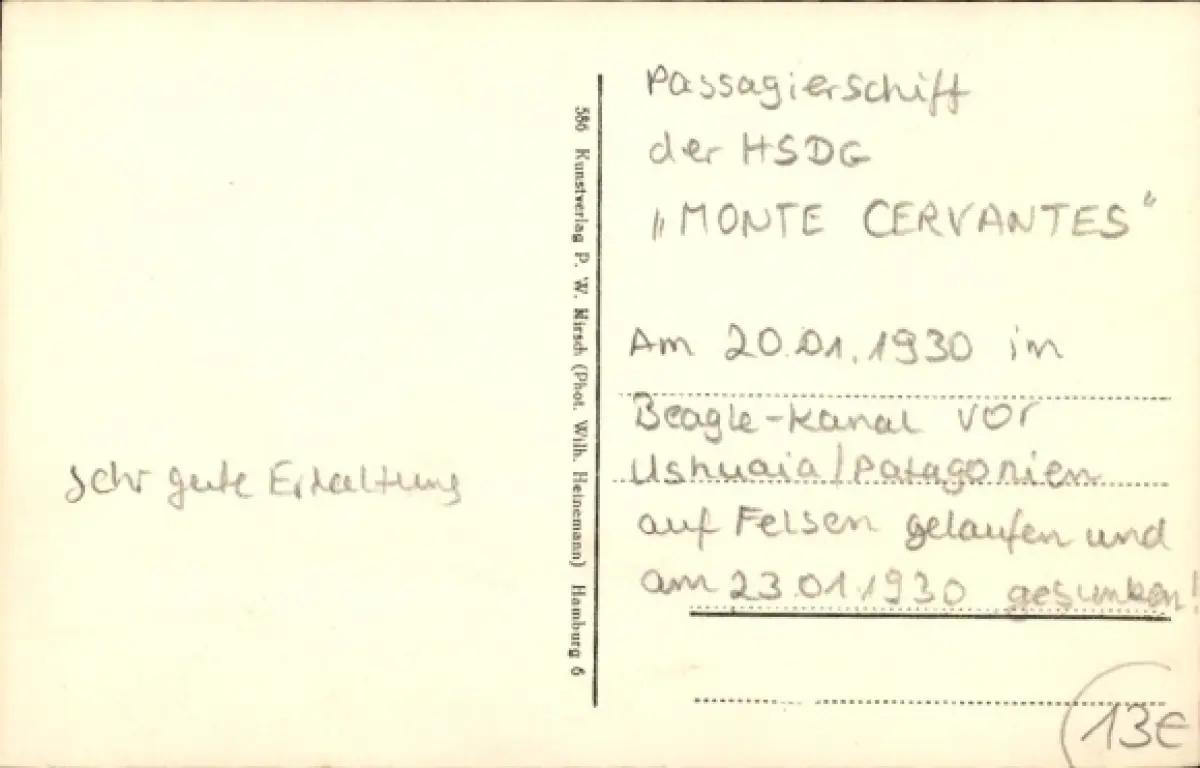 sehr gute Erhaltung
586 Kunstverlag P. W. Hirsch (Phot. Wilh. Heinemann) Hamburg 6
Passagierschiff
der HSDG
„MONTE CERVANTES“
Am 20.01.1930 im
Beagle-Kanal vor
Ushuaia/Patagonien
auf Felsen gelaufen und
am 23.01.1930 gesunken!
13€